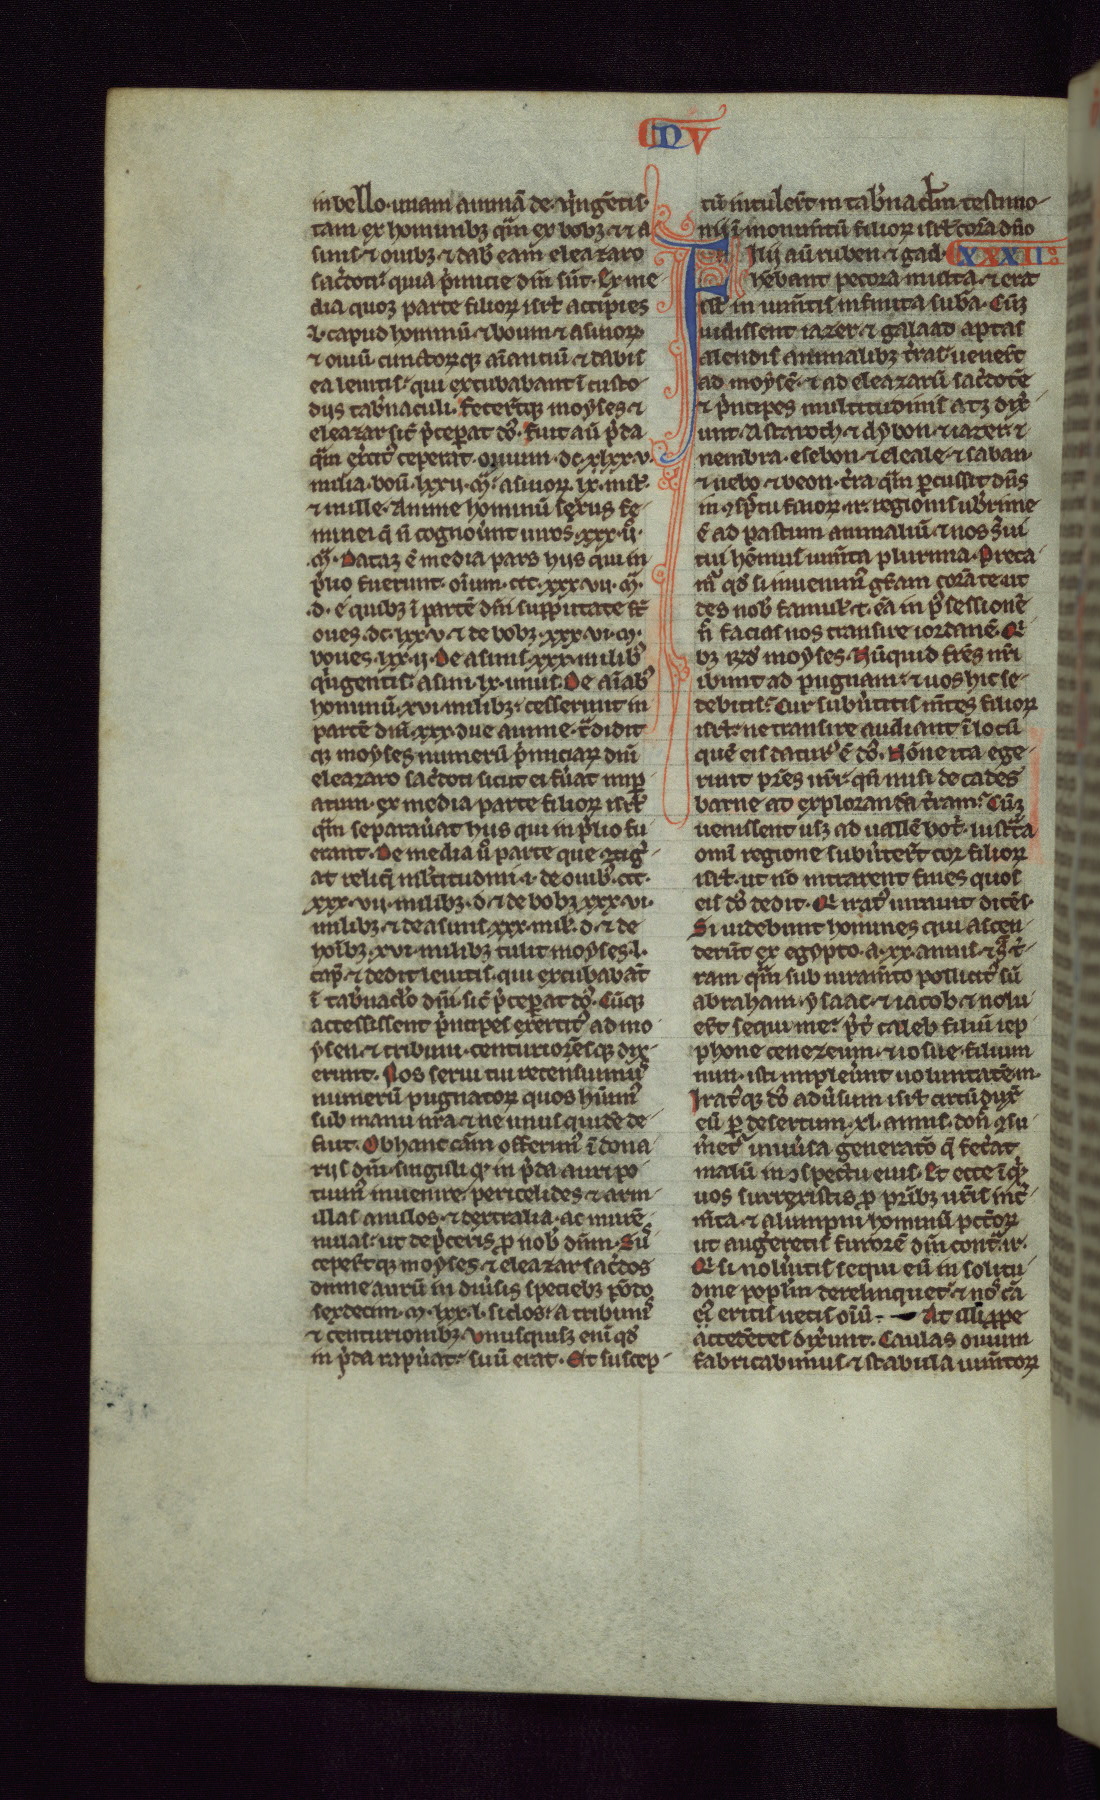 NV
in bello. unam animā de q̇ngētis.
tam ex hominibꝫ q̄m ex bobꝫ ⁊ a
sinis ⁊ ouibꝫ ⁊ dab̾ eam eleazaro
sac̾doti quia p̾micie dn̄i sūt. Ex me
dia quoꝫ parte filioꝝ isrl̾ accipies
l. capud hominū ⁊ boum ⁊ asinoꝝ
⁊ ouiū cunctoꝝqꝫ aīantiū ⁊ dabis
ea leuitis. qui excubabant ī custo
diis tab̾naculi. fecer̄tqꝫ moyses ⁊
eleazar sic̄ p̾cep̾at dn̄s. fuit aū p̾da
q̄m ex̾cit̾ ceperat. ouium. dc. lxx. v.
milia. boū. lxxii. m̄. asinoꝝ. lx. mil̾.
⁊ mille. Anime hominū sexus fe
minei q̄ n̄ cogno̾unt uiros. xxx. ii.
m̄. Dataꝫ ē media pars hiis qui in
p̾lio fuerunt. ouium. ccc. xxx. vii. m̄.
d. e quibꝫ ī partē dn̄i supputate st̄
oues. dc. lxx. v. ⁊ de bobꝫ. xxx. vi. m̄.
boues. lxx. ii. De asinis. xxx. milib̾
q̇ngentis. asini. lx. unus. De aīab̾
hominū. xvi. milibꝫ. cesserunt in
partē dn̄i. xxx. due anime. t̄didit
qꝫ moyses numerū p̾miciaꝝ dn̄i
eleazaro sac̾doti sicut ei fu̾at imp̲
atum. ex media parte filioꝝ isrl̾
q̄m separau̾at hiis qui in p̾lio fu
erant. De media u̾ parte que ꝯtig̾
at reliq̄ ml̾titudini. i. de ouib̾. ccc.
xxx. vii. milibꝫ. d. ⁊ de bobꝫ. xxx. vi.
milibꝫ. ⁊ de asinis. xxx. mil̾. d. ⁊ de
hoībꝫ. xvi. milibꝫ tulit moyses. l.
cap̾. ⁊ dedit leuitis. qui excubabāt
ī tab̾nac̾lo dn̄i. sic̄ p̾cep̾at dn̄s. Cūqꝫ
accessissent p̾ncipes exercit̾ ad mo
ysen. ⁊ tribuni. centurionesqꝫ dix
erunt. Nos serui tui recensuim̾
numerū pugnatoꝝ quos hūim̾
sub manu nr̄a. ⁊ ne unus quidē de
fuit. Ob hanc cām offerim̾ ī dona
riis dn̄i. singuli q̇ in p̾da auri po
tuim̾ inuenire. pericelides ⁊ arm
illas anulos. ⁊ dextralia. ac murē
nulas. ut dep̾ceris p̲ nob̾ dn̄m. Su
ceper̄tqꝫ moyses. ⁊ eleazar sac̾dos
omne aurū in diu̾sis speciebꝫ pōdo
sexdecim. m̄. lxx. l. siclos. a tribunis
⁊ centurionibꝫ. Vnusquisqꝫ enī qd̾
in p̾da rapu̾at. suū erat. Et suscep
tū intuler̄t in tab̾naclm̄ testimo
nii ī monim̄tū filioꝝ isrl̾ corā dn̄o
Filij aū ruben. ⁊ gad. XXXII.
hēbant pecora multa. ⁊ erat
ill̾ in ium̄tis infinita sub̄a. Cūqꝫ
uidissent iazer. ⁊ galaad aptas
alendis animalibꝫ t̾ras. uener̄t
ad moysē. ⁊ ad eleazarū sac̾dotē
⁊ p̾ncipes multitudinis atqꝫ dix̾
unt. Astaroth. ⁊ dybon. ⁊ iazer. ⁊
nembra. esebon. ⁊ eleale. ⁊ saban.
⁊ nebo. ⁊ beon. t̾ra q̄m p̲cussit dn̄s
in ꝯspc̄tu filioꝝ ir. regionis ub̾rime
ē ad pastum animaliū. ⁊ nos s̾ui
tui hēmus ium̄ta plurima. Preca
m̾ qd̾ si inuenim̾ gr̄am corā te. ut
des nob̾ famul̾. t. eā in possessionē
n̄ facias nos transire iordanē. Q̾
bꝫ rn̄d̾ moyses. Nūquid frēs ur̄i
ibunt ad pugnam. ⁊ uos hic se
debitis. Cur subu̾titis m̄tes filioꝝ
isrl̾. ne transire audiant ī locū
quē eis datur̾ ē dn̄s. Nōne ita ege
runt pr̄es ur̄i. qn̄ misi de cades
barne ad explorandā t̾ram. Cūqꝫ
uenissent usqꝫ ad uallē bot̾. lustrata
omī regione. subu̾ter̄t cor filioꝝ
isrl̾. ut nō intrarent fines quos
eis dn̄s dedit. Q̾ irat̾ iurauit dicēs.
Si uidebunt homines qui ascen
derūt ex egypto. a. xx. annis. ⁊ s̄. t̾
ram q̄m sub iuram̄to pollicit̾ sū
abraham. ysaac. ⁊ iacob. ⁊ nolu
er̄t sequi me. p̾t̾ caleb filiū iep
phone cenezeum. ⁊ iosue. filium
nun. isti impleu̾unt uoluntatē m.
Irat̾qꝫ dn̄s adu̾sum isrl̾ circūdux̾
eū p̲ desertum. xl. annis. don̄ ꝯsu
meret̾ uniu̾sa generatō q̄ fec̾at
malū in ꝯspectu eius. Et ecce īq̾t
uos surrexistis p̲ pr̄ibꝫ ur̄is inc̾
m̄ta. ⁊ alumpni hominū pcc̄oꝝ
ut augeretis furorē dn̄i contᷓ ir.
Q̾ si nolu̾itis sequi eū in solitu
dine pop̾lm̄ derelinquet. ⁊ uos cā
ei̾ eritis necis oīu. At illi p̲pe
accedētes dix̾unt. Caulas ouium
fabricabimus. ⁊ stabula ium̄toꝝ